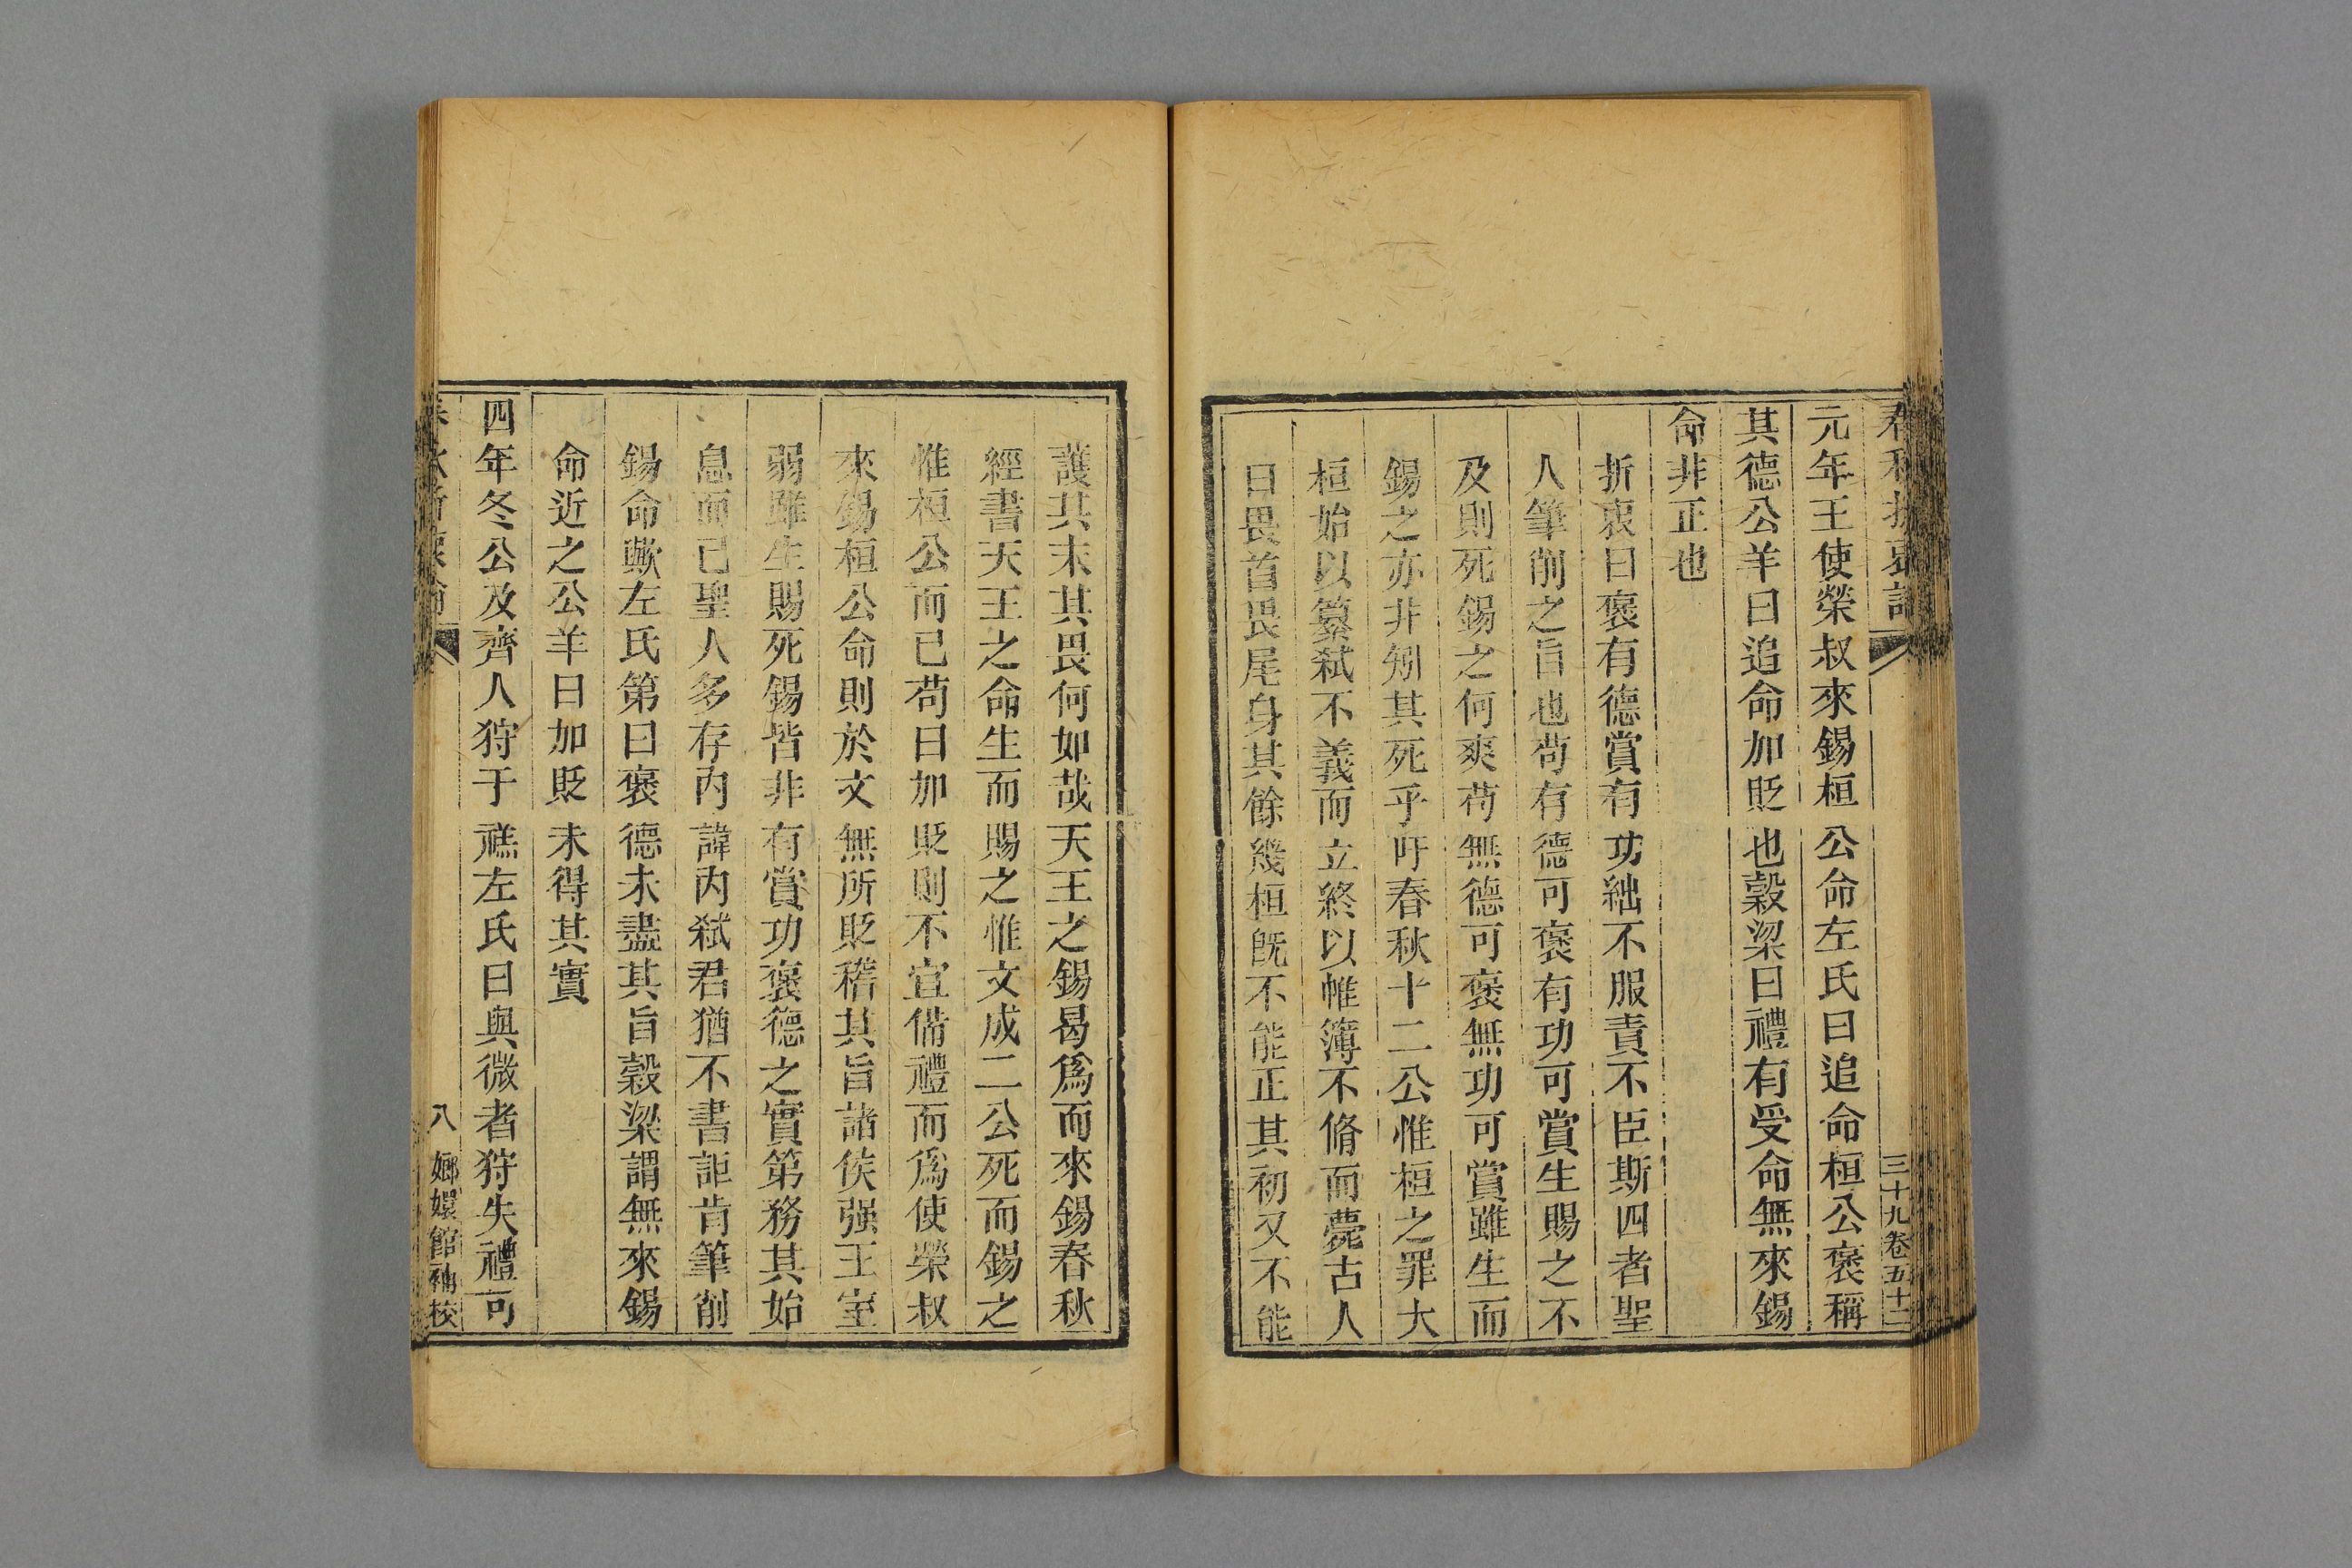 三十九卷五十二
元年王使榮叔來錫桓公命左氏曰追命桓公褒稱
其德公羊曰追命加貶也穀梁曰禮有受命無來錫
命非正也
折衷曰褒有德賞有功絀不服責不臣斯四者聖
人筆削之旨也苟有德可褒有功可賞生賜之不
及則死錫之何爽苟無德可褒無功可賞雖生而
錫之亦非矧其死乎吁春秋十二公惟桓之罪大
桓始以簒弑不義而立終以帷簿不脩而薨古人
曰畏首畏尾身其餘幾桓旣不能正其初又不能
護其末其畏何如哉天王之錫曷爲而來錫春秋
經書天王之命生而賜之惟文成二公死而錫之
惟桓公而已苟曰加貶則不宜備禮而爲使榮叔
來錫桓公命則於文無所貶稽其旨諸侯强王室
弱雖生賜死錫皆非有賞功褒德之實第務其始
息而已聖人多存內諱內弑君猶不書詎肯筆削
錫命歟左氏第曰褒德未盡其旨穀梁謂無來錫
命近之公羊曰加貶未得其實
四年冬公及齊人狩于禚左氏曰與微者狩失禮可
八 嫏嬛館補校